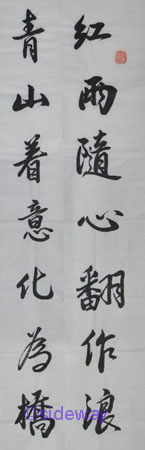 红雨随心翻作浪
青山着意化為橋
sideway